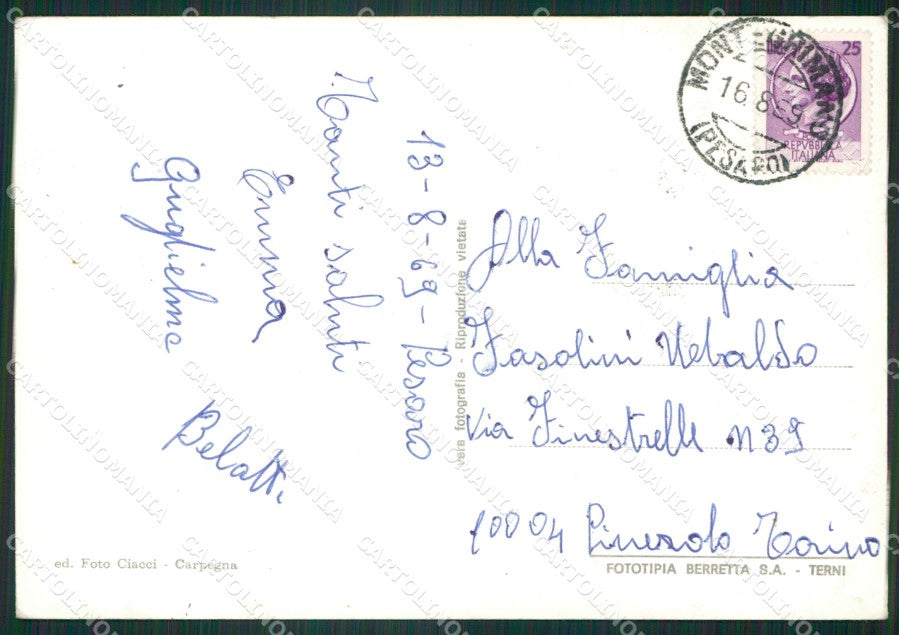 13-8-69-Pesaro
Tanti saluti
Emma
Guglielmo
Belatti
MONTEGRIMANO
16.8.69
(PESARO)
LIRE 25
REPVBBLICA
ITALIANA
Alla Famiglia
Fasolini Uebaldo
Via Finestrelle N 39
10004 Pinerolo Torino
vera fotografia - Riproduzione vietata
ed. Foto Ciacci - Carpegna
FOTOTIPIA BERRETTA S.A. - TERNI
CARTOLINOMANIA